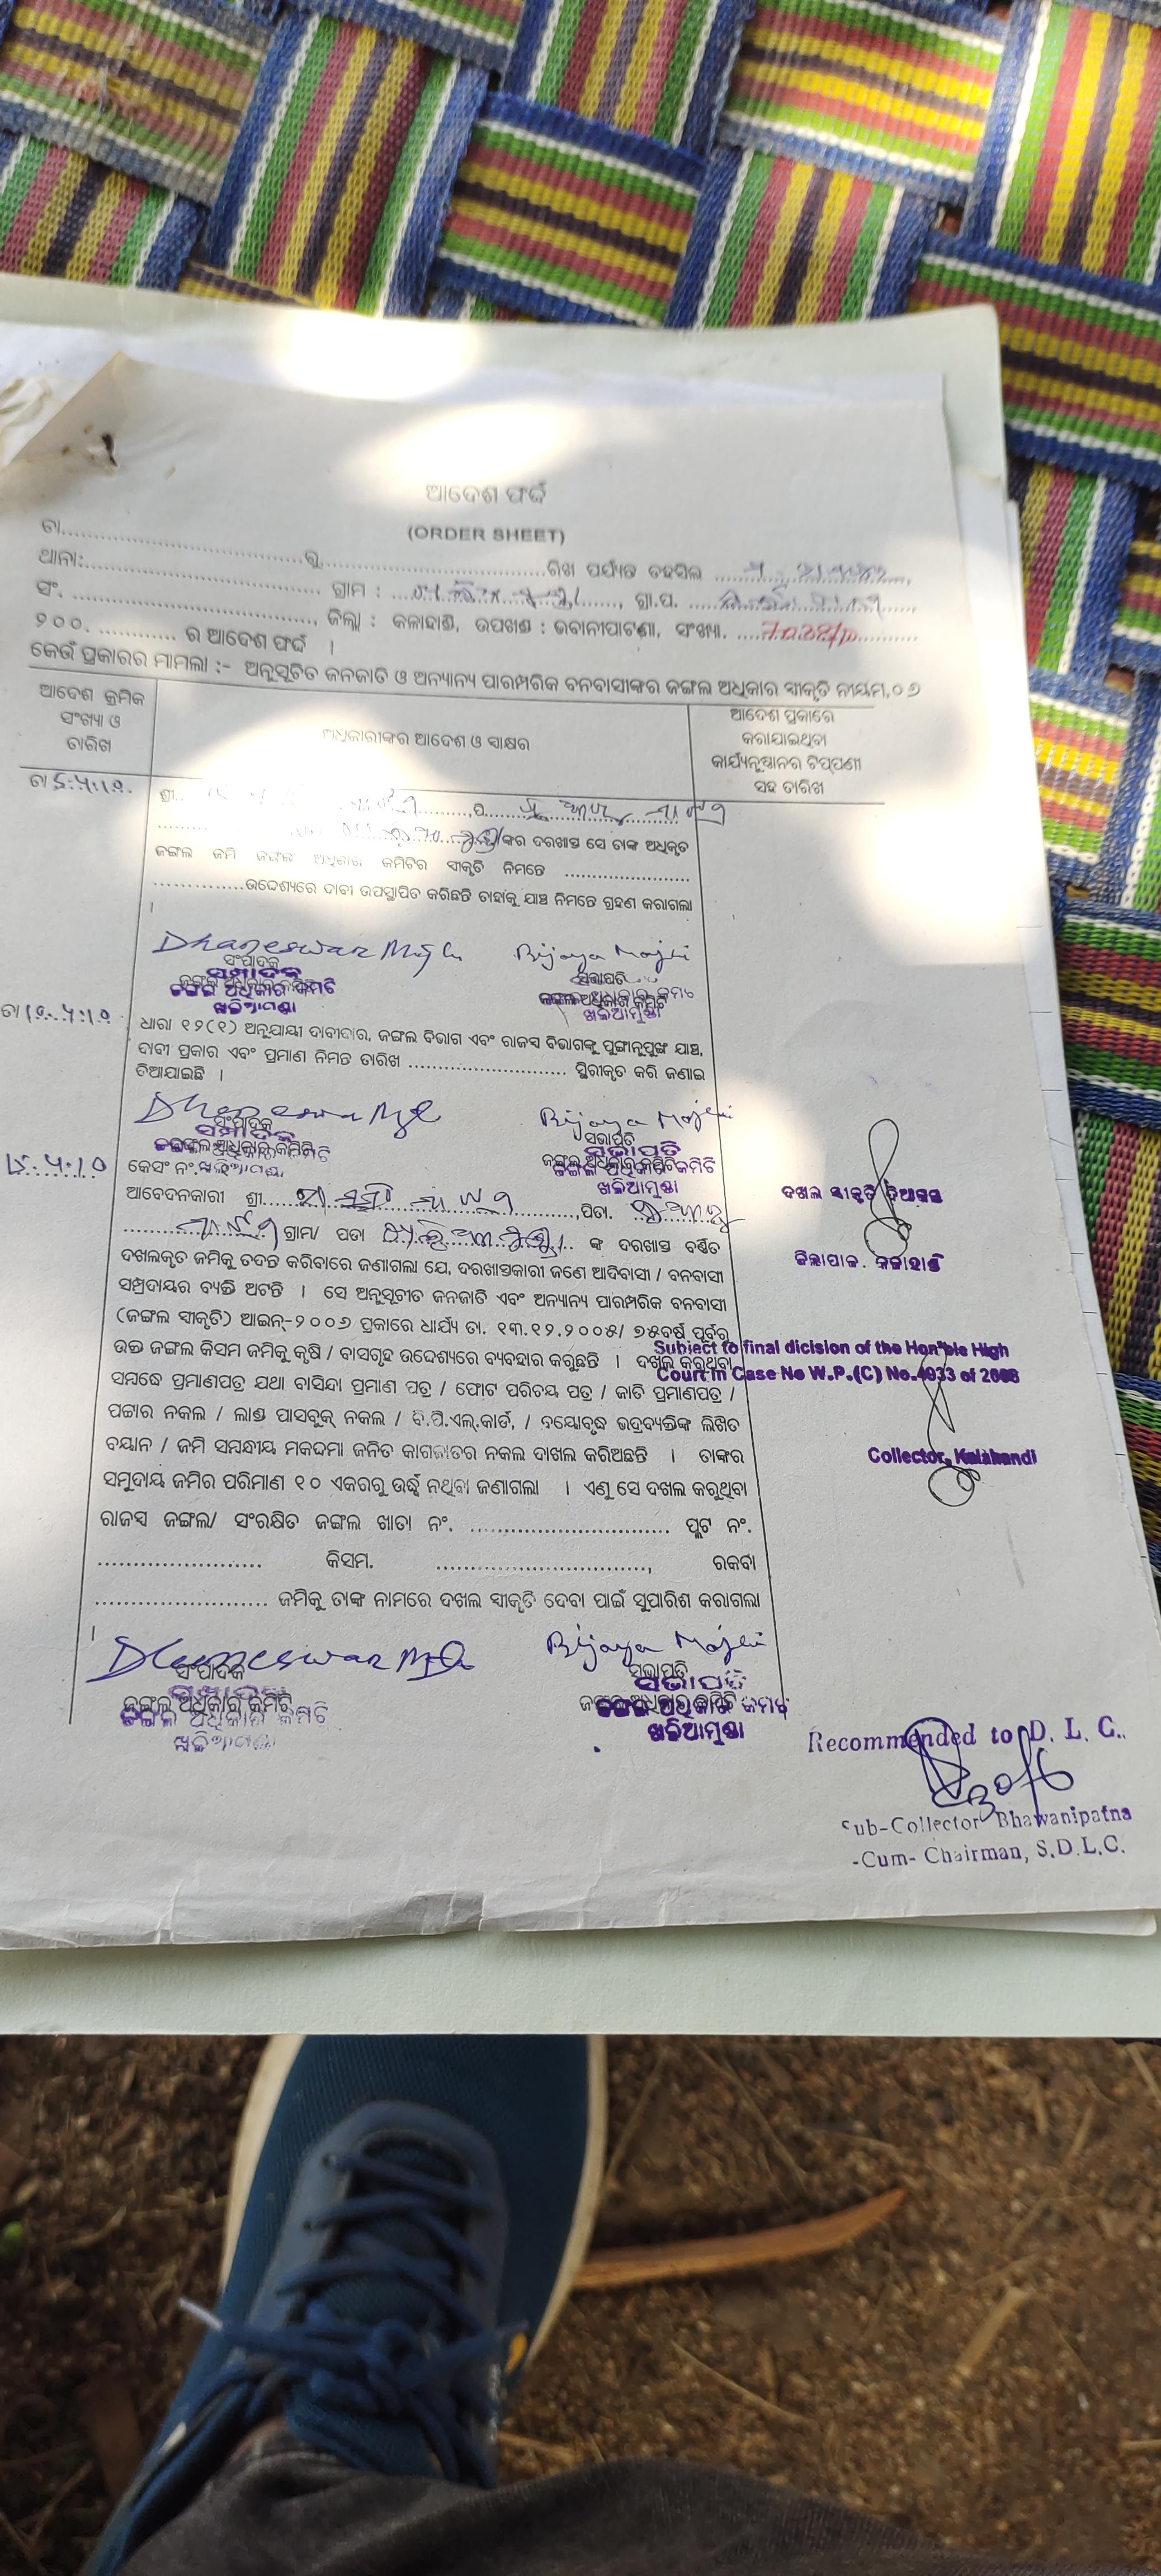 ଆଦେଶ ଫର୍ଦ୍ଦ
(ORDER SHEET)
ତା..........ରୁ..........ରିଖ ପର୍ଯ୍ୟନ୍ତ ତହସିଲ
ଥାନା:.......... ଗ୍ରାମ : .........., ଗ୍ରା.ପ. ..........
ସଂ. .........., ଜିଲ୍ଲା : କଳାହାଣ୍ଡି, ଉପଖଣ୍ଡ : ଭବାନୀପାଟଣା, ସଂଖ୍ୟା.
୨୦୦. .......... ର ଆଦେଶ ଫର୍ଦ୍ଦ ।
କେଉଁ ପ୍ରକାରର ମାମଲା :- ଅନୁସୂଚିତ ଜନଜାତି ଓ ଅନ୍ୟାନ୍ୟ ପାରମ୍ପରିକ ବନବାସୀଙ୍କର ଜଙ୍ଗଲ ଅଧିକାର ସ୍ୱୀକୃତି ନୀୟମ,୦୭
ଆଦେଶ କ୍ରମିକ
ସଂଖ୍ୟା ଓ
ତାରିଖ
ଅଧିକାରୀଙ୍କର ଆଦେଶ ଓ ସାକ୍ଷର
ଆଦେଶ ପ୍ରକାରେ
କରାଯାଇଥିବା
କାର୍ଯ୍ୟନୁଷ୍ଠାନର ଟିପ୍ପଣୀ
ସହ ତାରିଖ
ତା ୮.୪.୧୦.
ଶ୍ରୀ..........,ପି..........
..........ଙ୍କର ଦରଖାସ୍ତ ସେ ତାଙ୍କ ଅଧିକୃତ
ଜଙ୍ଗଲ ଜମି ଜଙ୍ଗଲ ଅଧିକାର କମିଟିର ସ୍ୱୀକୃତି ନିମନ୍ତେ ..........
..........ଉଦ୍ଦେଶ୍ୟରେ ଦାବୀ ଉପସ୍ଥାପିତ କରିଛନ୍ତି ତାହାକୁ ଯାଞ୍ଚ ନିମନ୍ତେ ଗ୍ରହଣ କରାଗଲା
।
Dhaneswar Majhi Bijaya Majhi
ସଂପାଦକ ସଭାପତି
ଜଙ୍ଗଲ ଅଧିକାର କମିଟି ଜଙ୍ଗଲ ଅଧିକାର କମିଟି
ଖଳିଆମୁଣ୍ଡା ଖଳିଆମୁଣ୍ଡା
ଧାରା ୧୨(୧) ଅନୁଯାୟୀ ଦାବୀଦାର, ଜଙ୍ଗଲ ବିଭାଗ ଏବଂ ରାଜସ୍ୱ ବିଭାଗଙ୍କୁ ପୁଙ୍ଖାନୁପୁଙ୍ଖ ଯାଞ୍ଚ,
ଦାବୀ ପ୍ରକାର ଏବଂ ପ୍ରମାଣ ନିମନ୍ତ ତାରିଖ .......... ସ୍ଥିରୀକୃତ କରି ଜଣାଇ
ଦିଆଯାଇଛି ।
Dhaneswar Majhi Bijaya Majhi
ସଂପାଦକ ସଭାପତି
ଜଙ୍ଗଲ ଅଧିକାର କମିଟି ଜଙ୍ଗଲ ଅଧିକାର କମିଟି
ଖଳିଆମୁଣ୍ଡା
କେସଂ ନଂ.
ଆବେଦନକାରୀ ଶ୍ରୀ..........,ପିତା. ..........
.......... ଗ୍ରାମ/ ପତା .......... ଙ୍କ ଦରଖାସ୍ତ ବର୍ଣ୍ଣିତ
ଦଖଲକୃତ ଜମିକୁ ତଦନ୍ତ କରିବାରେ ଜଣାଗଲା ଯେ, ଦରଖାସ୍ତକାରୀ ଜଣେ ଆଦିବାସୀ / ବନବାସୀ
ସମ୍ପ୍ରଦାୟର ବ୍ୟକ୍ତି ଅଟନ୍ତି । ସେ ଅନୁସୂଚୀତ ଜନଜାତି ଏବଂ ଅନ୍ୟାନ୍ୟ ପାରମ୍ପରିକ ବନବାସୀ
(ଜଙ୍ଗଲ ସ୍ୱୀକୃତି) ଆଇନ୍-୨୦୦୬ ପ୍ରକାରେ ଧାର୍ଯ୍ୟ ତା. ୧୩.୧୨.୨୦୦୫/ ୭୫ବର୍ଷ ପୂର୍ବରୁ
ଉକ୍ତ ଜଙ୍ଗଲ କିସମ ଜମିକୁ କୃଷି / ବାସଗୃହ ଉଦ୍ଦେଶ୍ୟରେ ବ୍ୟବହାର କରୁଛନ୍ତି । ଦଖଲ କରୁଥିବା
ସମ୍ବନ୍ଧେ ପ୍ରମାଣପତ୍ର ଯଥା ବାସିନ୍ଦା ପ୍ରମାଣ ପତ୍ର / ଫୋଟ ପରିଚୟ ପତ୍ର / ଜାତି ପ୍ରମାଣପତ୍ର /
ପଟ୍ଟାର ନକଲ / ଲାଣ୍ଡ ପାସବୁକ୍ ନକଲ / ବି.ପି.ଏଲ୍.କାର୍ଡ, / ବୟୋବୃଦ୍ଧ ଭଦ୍ରବ୍ୟକ୍ତିଙ୍କ ଲିଖିତ
ବୟାନ / ଜମି ସମ୍ବନ୍ଧୀୟ ମକଦ୍ଦମା ଜନିତ କାଗଜାତର ନକଲ ଦାଖଲ କରିଅଛନ୍ତି । ତାଙ୍କର
ସମୁଦାୟ ଜମିର ପରିମାଣ ୧୦ ଏକରରୁ ଉର୍ଦ୍ଧ୍ୱ ନଥିବା ଜଣାଗଲା । ଏଣୁ ସେ ଦଖଲ କରୁଥିବା
ରାଜସ୍ୱ ଜଙ୍ଗଲ/ ସଂରକ୍ଷିତ ଜଙ୍ଗଲ ଖାତା ନଂ. .......... ପ୍ଲଟ ନଂ.
.......... କିସମ. .........., ରକବା
.......... ଜମିକୁ ତାଙ୍କ ନାମରେ ଦଖଲ ସ୍ୱୀକୃତି ଦେବା ପାଇଁ ସୁପାରିଶ କରାଗଲା
।
Dhaneswar Majhi Bijaya Majhi
ସଂପାଦକ ସଭାପତି
ଜଙ୍ଗଲ ଅଧିକାର କମିଟି ଜଙ୍ଗଲ ଅଧିକାର କମିଟି
ଖଳିଆମୁଣ୍ଡା
ଦଖଲ ସ୍ୱୀକୃତି ଦିଆଗଲା
ଜିଲ୍ଲାପାଳ. କଳାହାଣ୍ଡି
Subject to final dicision of the Hon'ble High
Court in Case No W.P.(C) No.4933 of 2008
Collector, Kalahandi
Recommended to D. L. C..
Sub-Collector Bhawanipatna
-Cum- Chairman, S.D.L.C.